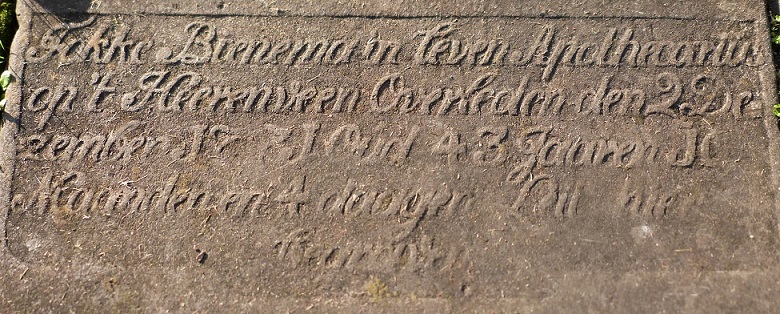 Fokke Bienema in leven Apothecarius
op 't Heerenveen Overleden den 2 De-
zember 17 71 Oud 43 Jaaren 11
Maanden en 4 daagen Lid hier